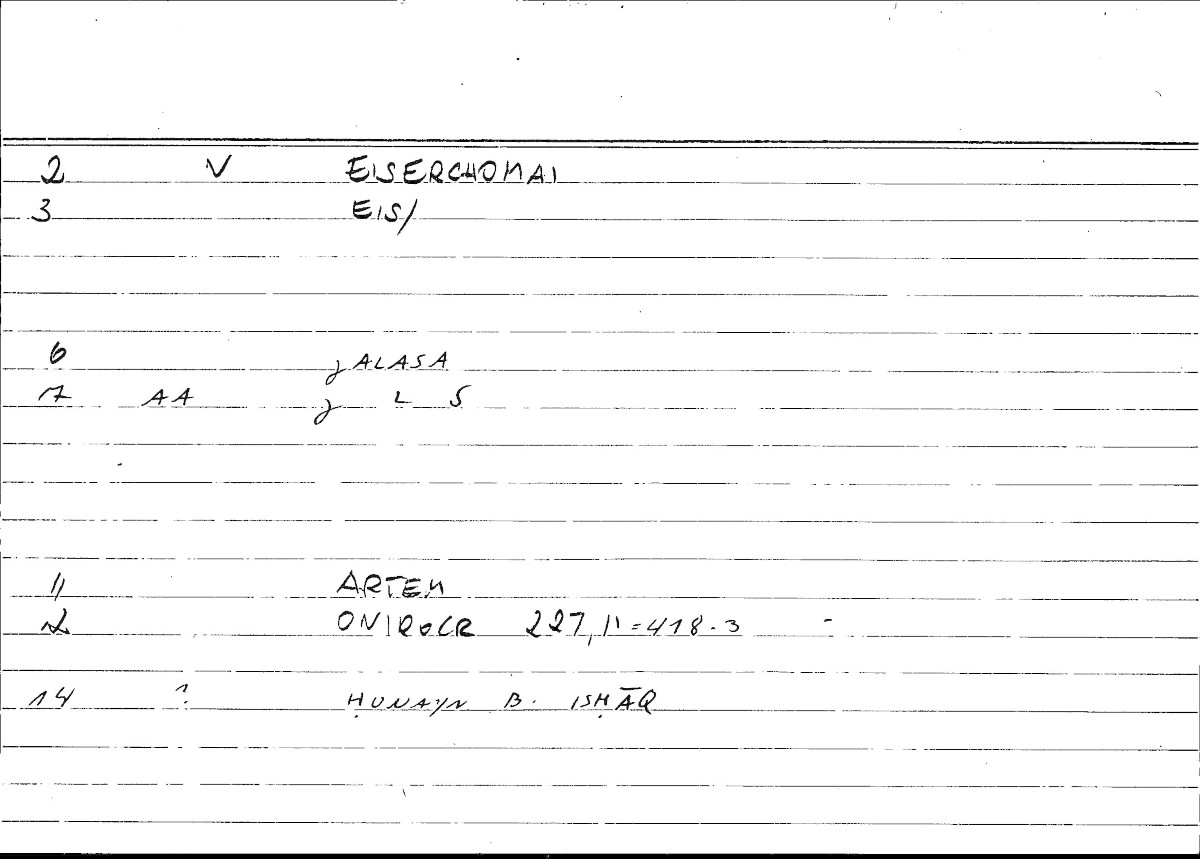 2 V EISERCHOMAI
3 EIS/
6 jALASA
7 AA j L S
11 ARTEM
12 ONIROCR 227,11=418.3
14 ? ḤUNAYN B. ISḤĀQ